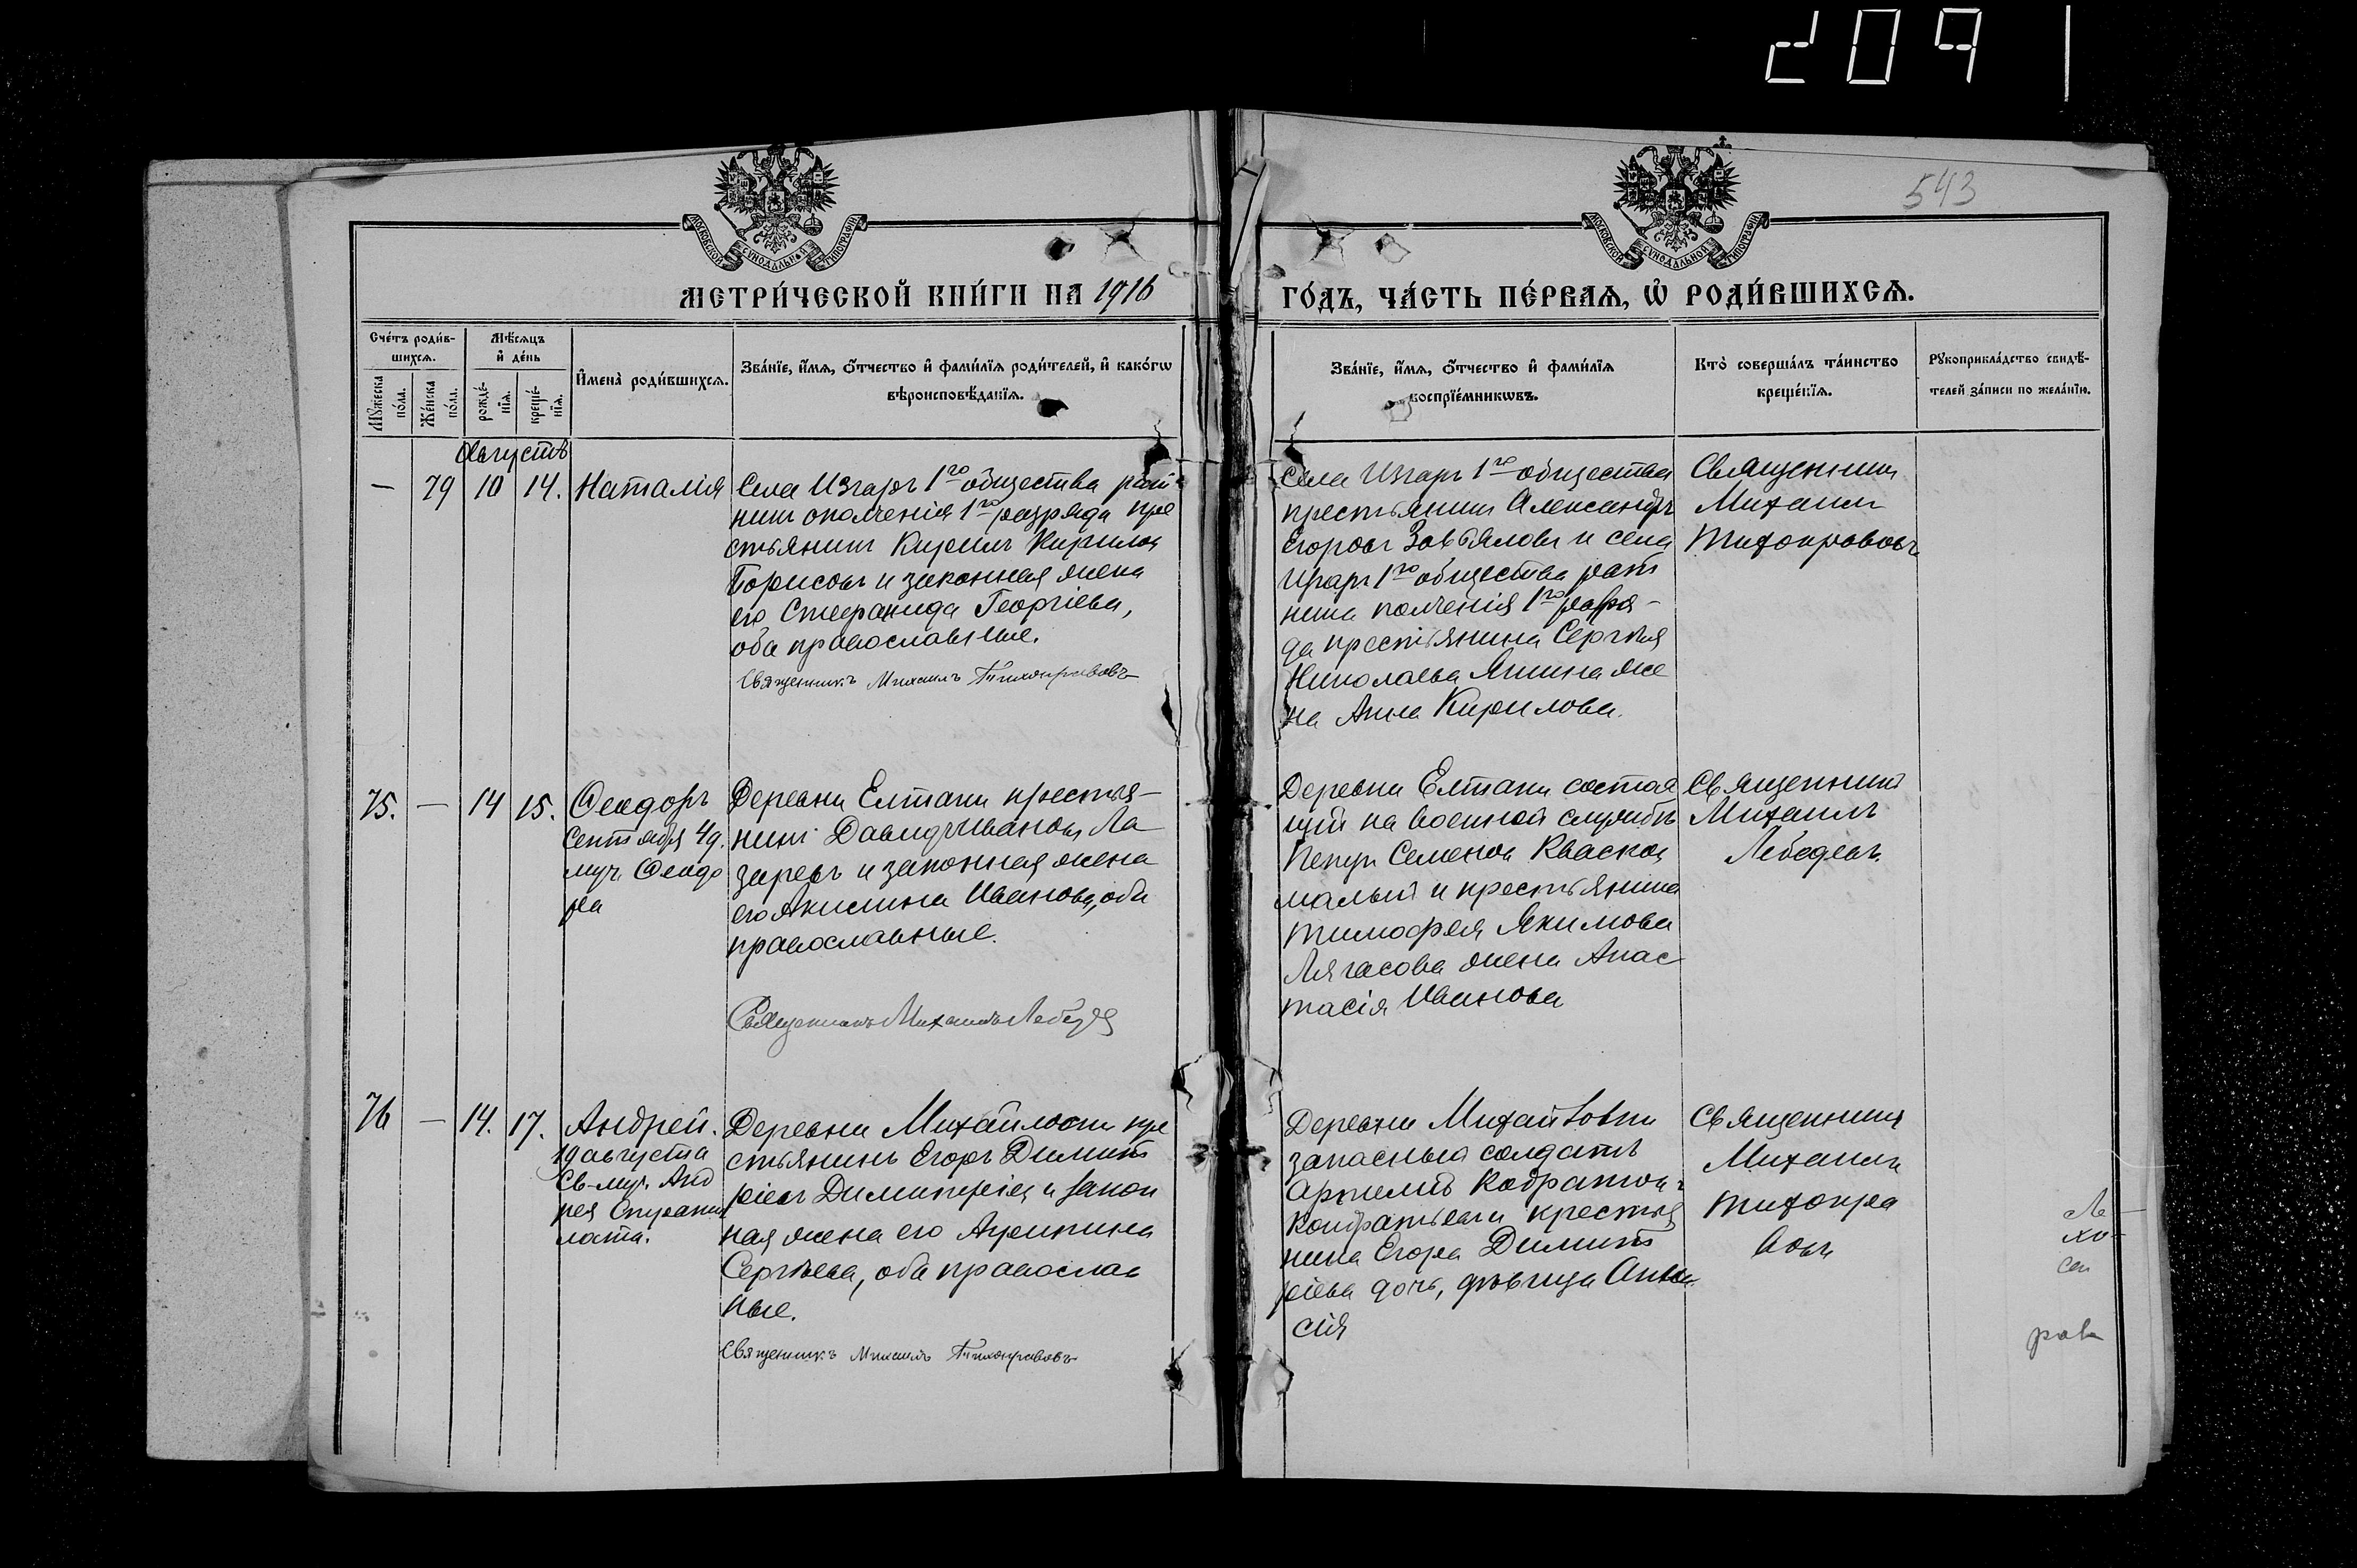 209
543
МОСКОВСКОЙ СѴНОДАЛЬНОЙ ТИПОГРАФІИ
МОСКОВСКОЙ СѴНОДАЛЬНОЙ ТИПОГРАФІИ
МЕТРИ́ЧЕСКОЙ КНИ́ГИ НА 1916
ГО́ДЪ, ЧА́СТЬ ПЕ́РВАѦ, Ѽ РОДИ́ВШИХСѦ.
Сче́тъ роди́в-
шихсѧ.
Мѣ́сѧцъ
и҆ де́нь
Мꙋ́жеска
по́ла.
Же́нска
по́ла.
рожде́-
нїѧ.
креще́-
нїѧ.
И҆мена̀ роди́вшихсѧ.
Зва́нїе, и҆́мѧ, ѻ҆́тчество и҆ фами́лїѧ роди́телей, и҆ како́гѡ
вѣроисповѣ́данїѧ.
Зва́нїе, и҆́мѧ, ѻ҆́тчество и҆ фами́лїѧ
воспрїе́мникѡвъ.
Кто̀ соверша́лъ та́инство
креще́нїѧ.
Рꙋкоприкла́дство свидѣ́-
телей за́писи по жела́нїю.
Августъ
— 79 10 14. Наталія
Села Изгаръ 1го общества рат-
никъ ополченія 1го разряда кре
стьянинъ Кирилъ Кириловъ
Борисовъ и законная жена
его Стефанида Георгіева,
оба православные.
Священникъ Михаилъ Тихонравовъ
Села Изгаръ 1го общества
крестьянинъ Александръ
Егоровъ Завьяловъ и села
Изгаръ 1го общества рат
ника полченія 1го разря-
да крестьянина Сергѣя
Николаева Яшина же
на Анна Кирилова.
Священникъ
Михаилъ
Тихонравовъ
75. — 14 15. Ѳеодоръ
Сентября 4д.
муч. Ѳеодо
ра
Деревни Елтани крестья-
нинъ Давидъ Ивановъ Ла
заревъ и законная жена
его Акилина Иванова, оба
православные.
Священникъ Михаилъ Лебедев
Деревни Елтани состоя
щій на военной службѣ
Петръ Семенов Квасков
малый и крестьянина
Тимофея Якимова
Лягасова жена Анас
тасія Иванова
Священникъ
Михаилъ
Лебедевъ.
76 — 14. 17. Андрей.
19 августа
Св-муч. Анд
рея Стратила
лата.
Деревни Михайловки кре
стьянинъ Егоръ Димит
ріевъ Димитріев и закон
ная жена его Агрипина
Сергѣева, оба православ
ные.
Священникъ Михаилъ Тихонравовъ
Деревни Михайловки
запасный солдатъ
Кодратов
Кондратьевъ и крестья
нина Егора Димит
ріева дочь, дѣвица Анта
сія
Священникъ
Михаилъ
Тихонра
вовъ
рав